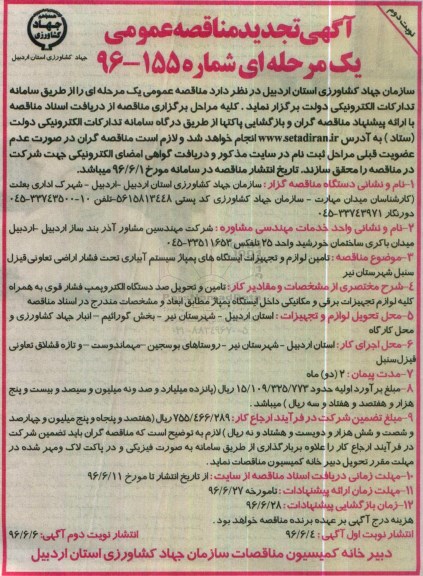 نوبت دوم
آگهی تجدید مناقصه عمومی
یک مرحله ای شماره ۱۵۵-۹۶
جهاد کشاورزی استان اردبیل
سازمان جهاد کشاورزی استان اردبیل در نظر دارد مناقصه عمومی یک مرحله ای را از طریق سامانه
تدارکات الکترونیکی دولت برگزار نماید . کلیه مراحل برگزاری مناقصه از دریافت اسناد مناقصه
تا ارائه پیشنهاد مناقصه گران و بازگشایی پاکتها از طریق درگاه سامانه تدارکات الکترونیکی دولت
(ستاد ) به آدرس www.setadiran.ir انجام خواهد شد و لازم است مناقصه گران در صورت عدم
عضویت قبلی مراحل ثبت نام در سایت مذکور و دریافت گواهی امضای الکترونیکی جهت شرکت
در مناقصه را محقق سازند. تاریخ انتشار مناقصه در سامانه مورخ ۹۶/۶/۱ میباشد.
۱-نام و نشانی دستگاه مناقصه گزار : سازمان جهاد کشاورزی استان اردبیل -اردبیل - شهرک اداری بعثت
(کارشناسان میدان مهارت - سازمان جهاد کشاورزی کد پستی ۵۶۱۵۸۱۳۴۴۸-تلفن ۱۰-۳۳۷۴۳۵۰۰-۰۴۵
دورنگار ۳۳۷۴۳۹۷۱-۰۴۵
۲-نام و نشانی واحد خدمات مهندسی مشاوره : شرکت مهندسین مشاور آذر بند ساز اردبیل -اردبیل
میدان باکری ساختمان خورشید واحد ۲۵ تلفکس ۳۳۵۱۱۶۵۲-۰۴۵
۳-موضوع مناقصه : تامین لوازم و تجهیزات ایستگاه های پمپاژ سیستم آبیاری تحت فشار اراضی تعاونی قینل
سنبل شهرستان نیر
۴-شرح مختصری از مشخصات و مقادیر کار : تامین و تحویل صد دستگاه الکتروپمپ فشار قوی به همراه
کلیه لوازم تجهیزات برقی و مکانیکی داخل ایستگاه پمپاژ مطابق ابعاد و مشخصات مندرج در اسناد مناقصه
۵-محل تحویل لوازم و تجهیزات : استان اردبیل - شهرستان نیر - بخش کورائیم - انبار جهاد کشاورزی و
محل کارگاه
۶-محل اجرای کار : استان اردبیل - شهرستان نیر - روستاهای بوسجین -مهماندوست - و تازه قشلاق تعاونی
قیزل سنبل
۷-مدت پیمان : ۲ (دو) ماه
۸-مبلغ برآورد اولیه حدود ۱۵/۱۰۹/۳۲۵/۷۷۳ ریال (پانزده میلیارد و صد و نه میلیون و سیصد و بیست و پنج
هزار و هفتصد و هفتاد و سه ریال ) میباشد.
۹-مبلغ تضمین شرکت در فرآیند ارجاع کار : ۷۵۵/۴۶۶/۲۸۹ ریال (هفتصد و پنجاه و پنج میلیون و چهارصد
و شصت و شش هزار و دویست و هشتاد و نه ریال ) لازم به توضیح است که مناقصه گران باید تضمین شرکت
در فرآیند ارجاع کار را علاوه بر بارگذاری از طریق سامانه به صورت فیزیکی و در پاکت لاک و مهر شده در
مهلت مقرر تحویل دبیر خانه کمیسیون مناقصات نماید.
۱۰-مهلت زمانی دریافت اسناد مناقصه از سایت : از تاریخ انتشار تا مورخ ۹۶/۶/۱۱
۱۱-مهلت زمان ارائه پیشنهادات : تا مورخه ۹۶/۶/۲۷
۱۲-زمان بازگشایی پیشنهادات : ۹۶/۶/۲۸
هزینه درج آگهی بر عهده برنده مناقصه خواهد بود .
انتشار نوبت اول آگهی : ۹۶/۶/۴ انتشار نوبت دوم آگهی : ۹۶/۶/۶
دبیر خانه کمیسیون مناقصات سازمان جهاد کشاورزی استان اردبیل